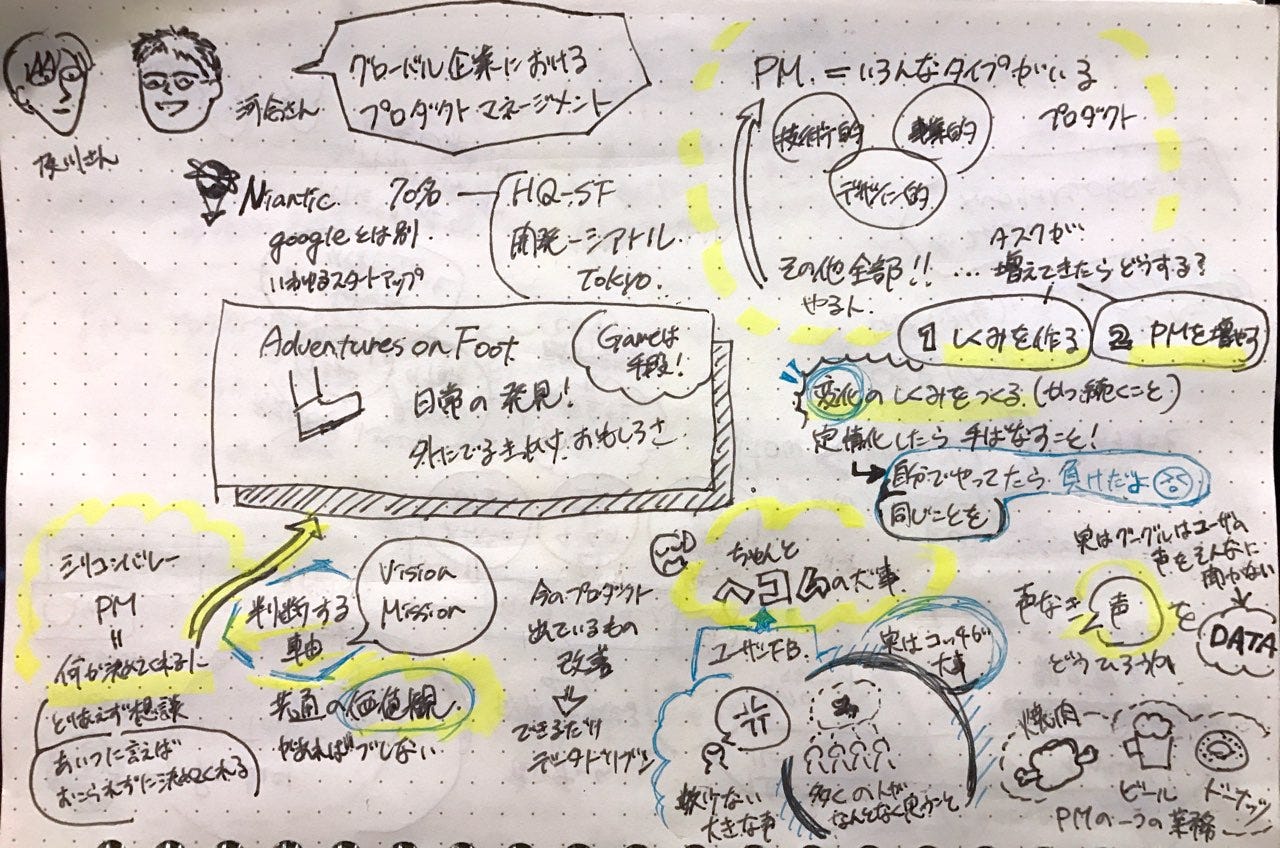 河合さん
グローバル企業における
プロダクトマネージメント
Niantic 70名
googleとは別
いわゆるスタートアップ
HQ-SF
開発-シアトル
Tokyo.
Adventures on Foot
日常の発見!
外にでるきっかけ、おもしろさ
Gameは
手段!
PM. = いろんなタイプがいる
技術的
事業的
デザイン的
プロダクト
その他全部!!
やる人
... タスクが
増えてきたらどうする?
1 しくみを作る
2 PMを増やす
変化のしくみをつくる(かつ続くこと)
定常化したら手ばなすこと!
自分でやってたら負けだよ
同じことを
シリコンバレー
PM
=
何か決めてくれる
とりあえず相談
あいつに言えば
おこられずに決めてくれる
判断する
軸
Vision
Mission
共通の価値観
があればブレない
今のプロダクト
出ているもの
改善
できるだけ
データドリブン
ちゃんと
ヘコむの大事
ユーザFB.
実はコッチが
大事
数少ない
大きな声
多くの人が
なんとなく思うこと
実はグーグルはユーザの
声をそんなに
聞かない
声なき声を
どうひろうか
DATA
焼肉
ビール
ドーナッツ
PMの一つの業務